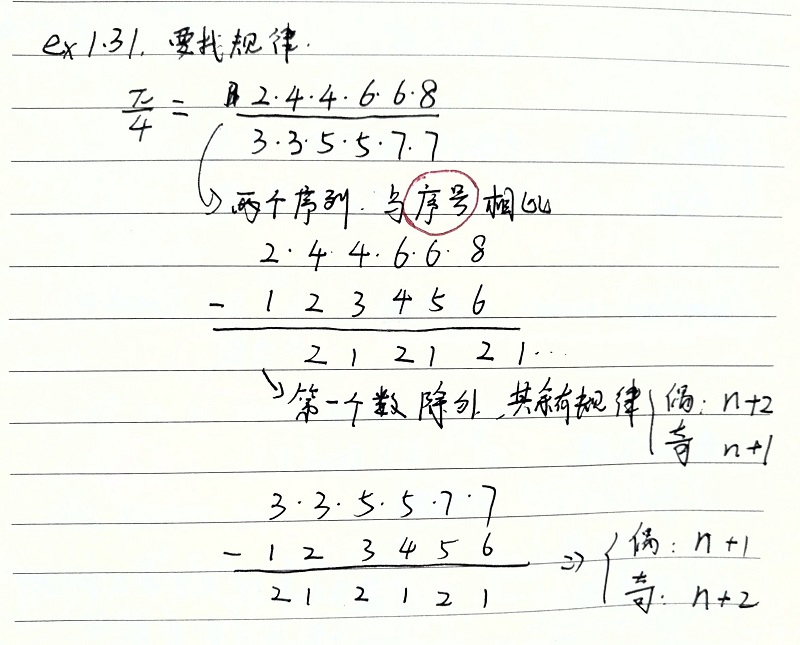 ex 1.31. 要找规律.
π/4 = 2·4·4·6·6·8
3·3·5·5·7·7
两个序列. 与序号相比
2·4·4·6·6·8
- 1 2 3 4 5 6
2 1 2 1 2 1...
第一个数除外, 其余有规律 { 偶: n+2
奇 n+1
3·3·5·5·7·7
- 1 2 3 4 5 6 => { 偶: n+1
2 1 2 1 2 1 奇: n+2